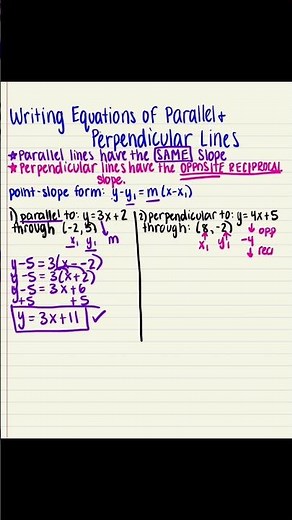 Writing Equations of Parallel +
Perpendicular Lines
★Parallel lines have the SAME Slope
★Perpendicular lines have the OPPOSITE RECIPROCAL
slope.
point-slope form: y-y₁ = m(x-x₁)
1) parallel to: y=3x+2
through (-2, 5)
x₁ y₁ m
y-5=3(x--2)
y-5=3(x+2)
y-5=3x+6
+5 +5
y=3x+11 ✓
2) perpendicular to: y=4x+5
through: (8,-2) ↓ opp
x₁ y₁ -4
↓ reci